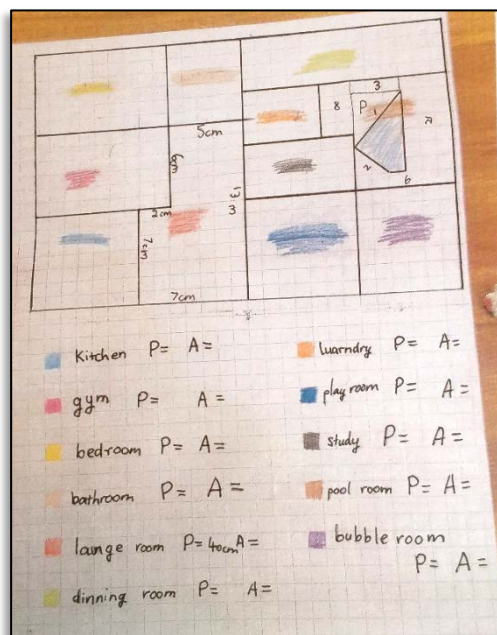 3
P
8
5cm
6cm
2
6
2cm
13.3
7cm
7cm
Kitchen P= A=
gym P= A=
bedroom P= A=
bathroom P= A=
launge room P=40cm A=
dinning room P= A=
luarndry P= A=
play room P= A=
study P= A=
pool room P= A=
bubble room
P= A=